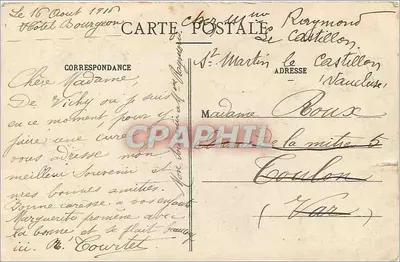 Le 16 Août 1916
Hôtel Bourgeon
CARTE POSTALE
chez Mme Raymond
de Castillon
St Martin le Castillon
Vaucluse
CORRESPONDANCE
ADRESSE
Chère Madame,
De Vichy ou je suis
en ce moment pour y
faire une cure
vous adresse mon
meilleur souvenir et
mes bonnes amitiés.
Bonne caresse à vos enfants
Marguerite promène avec
sa bonne et se plait beaucoup
ici. Tourtet
Madame Roux
de la mitre 5
Toulon
(Var)
CPAPHIL